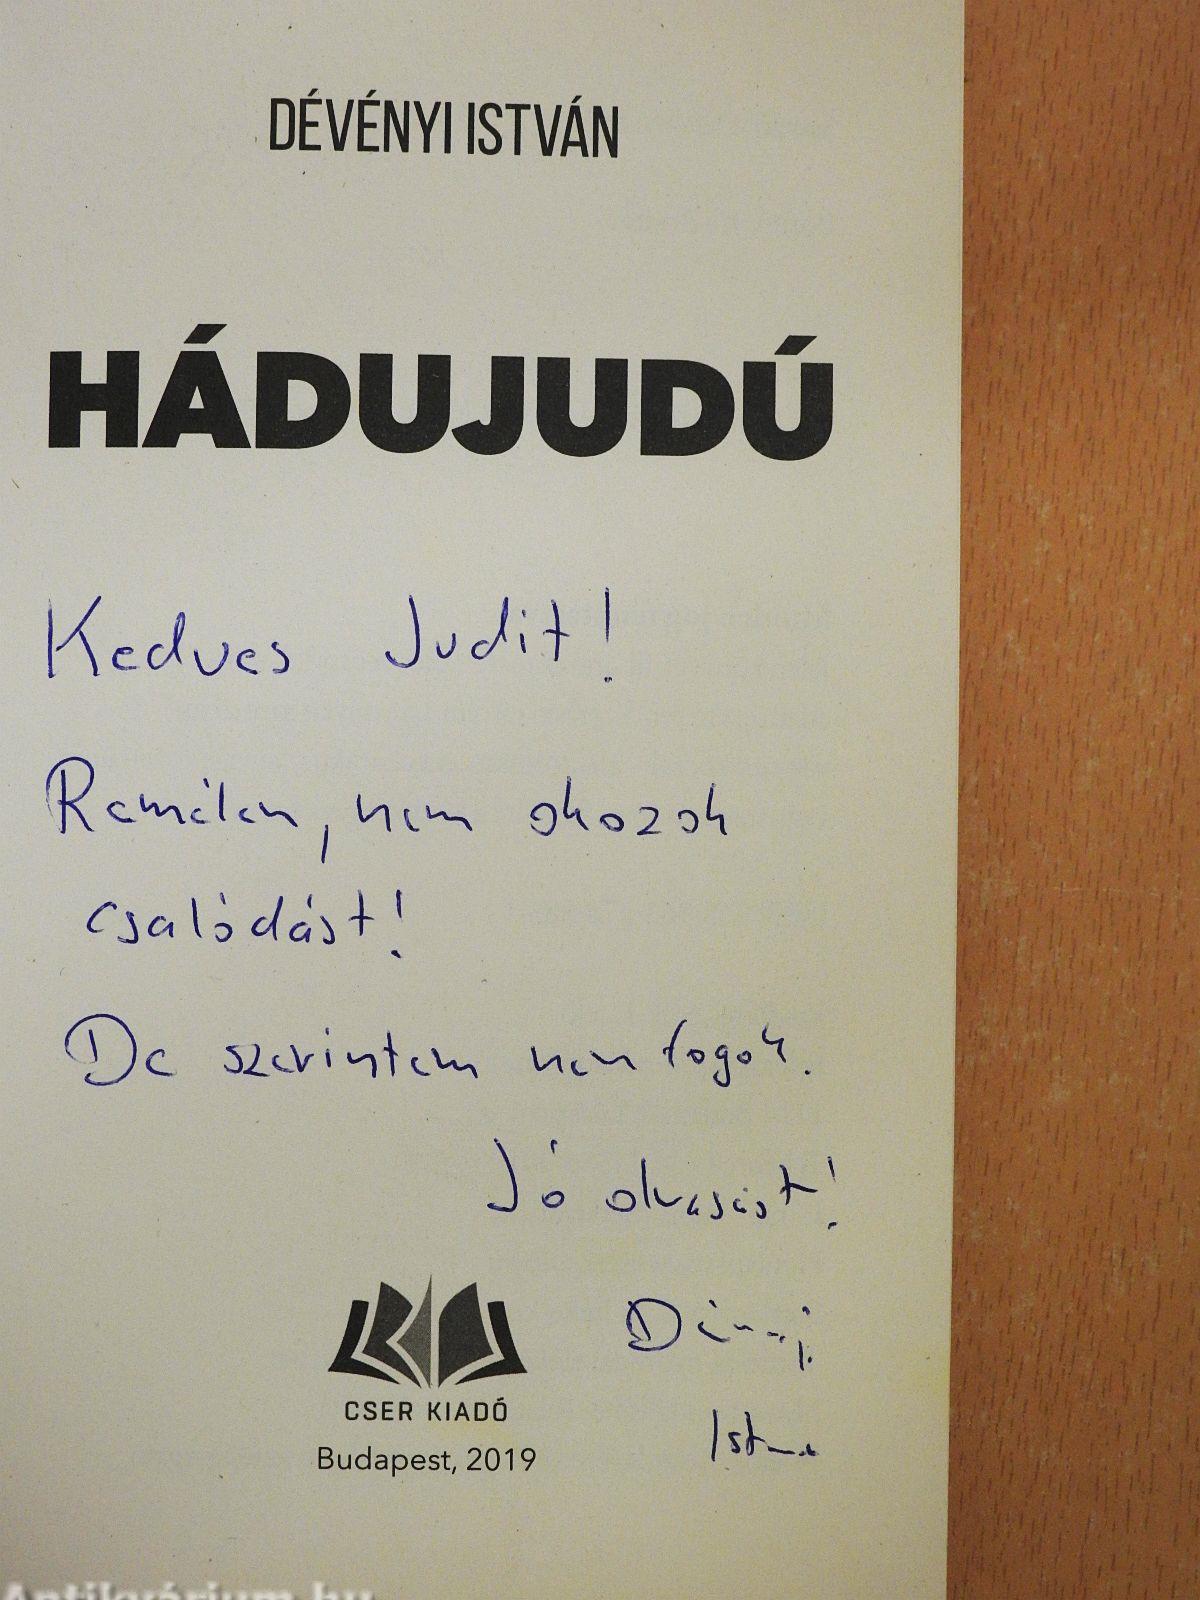 DÉVÉNYI ISTVÁN
HÁDUJUDÚ
Kedves Judit!
Remélem, nem okozok
csalódást!
De szerintem nem fogok.
Jó olvasást!
CSER KIADÓ
Budapest, 2019
Antikvárium.hu